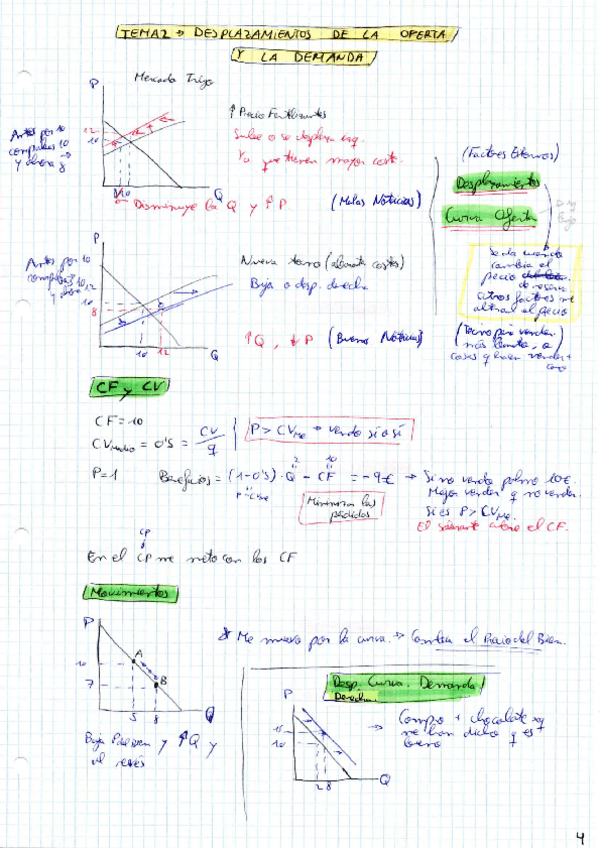 TEMA 2 → DESPLAZAMIENTOS DE LA OFERTA
Y LA DEMANDA
P
Mercado Trigo
↑ Precio Fertilizantes
Antes por 10
compraba 10
y ahora 8
12
10
Sube o se desplaza izq.
Ya que tienen mayor coste.
8 10
Q
Disminuye la Q y ↑ P
(Malas Noticias)
(Factores Externos)
Desplazamientos
Curva Oferta
Se da cuando
cambia el
precio
de reserva.
otros factores no
alteran el precio
P
Antes por 10
12
10
8
Nueva tecno (abarata costes)
Baja o desp. derecha
10 12
Q
↑ Q, ↓ P (Buenas Noticias)
CF y CV
CF = 10
CV medio = 0'5 = CV / q
P > CVMe → vendo sí o sí
P = 1
Beneficios = (1 - 0'5) · Q - CF = -9€
2
10
→ Si no vendo palmo 10€.
Mejor vender q no vender.
Si es P > CVMe.
El sobrante cubre el CF.
Minimiza las
pérdidas
CP
En el CP me meto con los CF
Movimientos
P
A
B
10
7
5 8
Q
* Me muevo por la curva. → Cambia el Precio del Bien.
Baja P
y ↑ Q y
al revés
Desp. Curva. Demanda
Derecha.
P
15
10
2 8
Q
→ Compro + chocolate xq
me han dicho q es
bueno
4